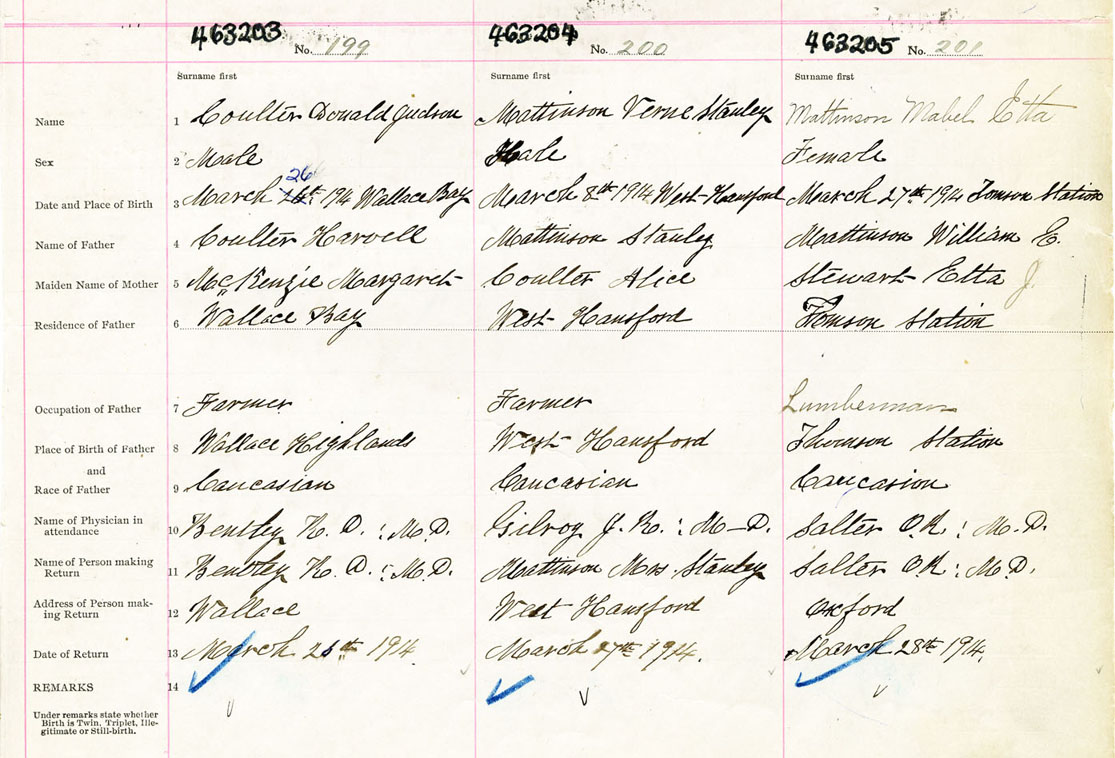 463203 No. 199 463204 No. 200 463205 No. 201
Surname first Surname first Surname first
Name 1 Coulter Donald Judson Mattinson Verne Stanley Mattinson Mabel Etta
Sex 2 Male Male Female
26
Date and Place of Birth 3 March 1914 Wallace Bay March 8th 1914 West-Hansford March 27th 1914 Tomson Station
Name of Father 4 Coulter Harvell Mattinson Stanley Mattinson William E.
Maiden Name of Mother 5 McKenzie Margaret Coulter Alice Stewart Etta J.
Residence of Father 6 Wallace Bay West Hansford Tomson Station
Occupation of Father 7 Farmer Farmer Lumberman
Place of Birth of Father 8 Wallace Highlands West Hansford Thomson Station
and
Race of Father 9 Caucasian Caucasian Caucasion
Name of Physician in
attendance 10 Bentley H. D. : M.D. Gilroy J. R. : M-D. Salter O.K : M.D.
Name of Person making
Return 11 Bentley H. D. : M.D. Mattinson Mrs Stanley Salter O.K : M.D.
Address of Person mak-
ing Return 12 Wallace West Hansford Oxford
Date of Return 13 March 26th 1914. March 27th 1914. March 28th 1914.
REMARKS 14
Under remarks state whether
Birth is Twin, Triplet, Ille-
gitimate or Still-birth.